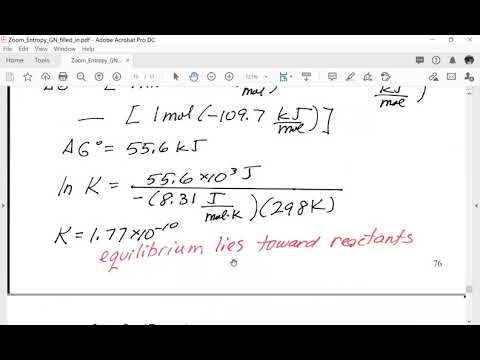 Zoom_Entropy_GN_filled_in.pdf - Adobe Acrobat Pro DC
File Edit View Sign Window Help
Home Tools Zoom_Entropy_GN_... ×
/ 17
ΔG° = [ 1 mol ( kJ/mol )
— [ 1 mol (-109.7 kJ/mol)]
ΔG° = 55.6 kJ
ln K = 55.6 × 10³ J / -(8.31 J/mol·K)(298K)
K = 1.77 × 10⁻¹⁰
equilibrium lies toward reactants
76